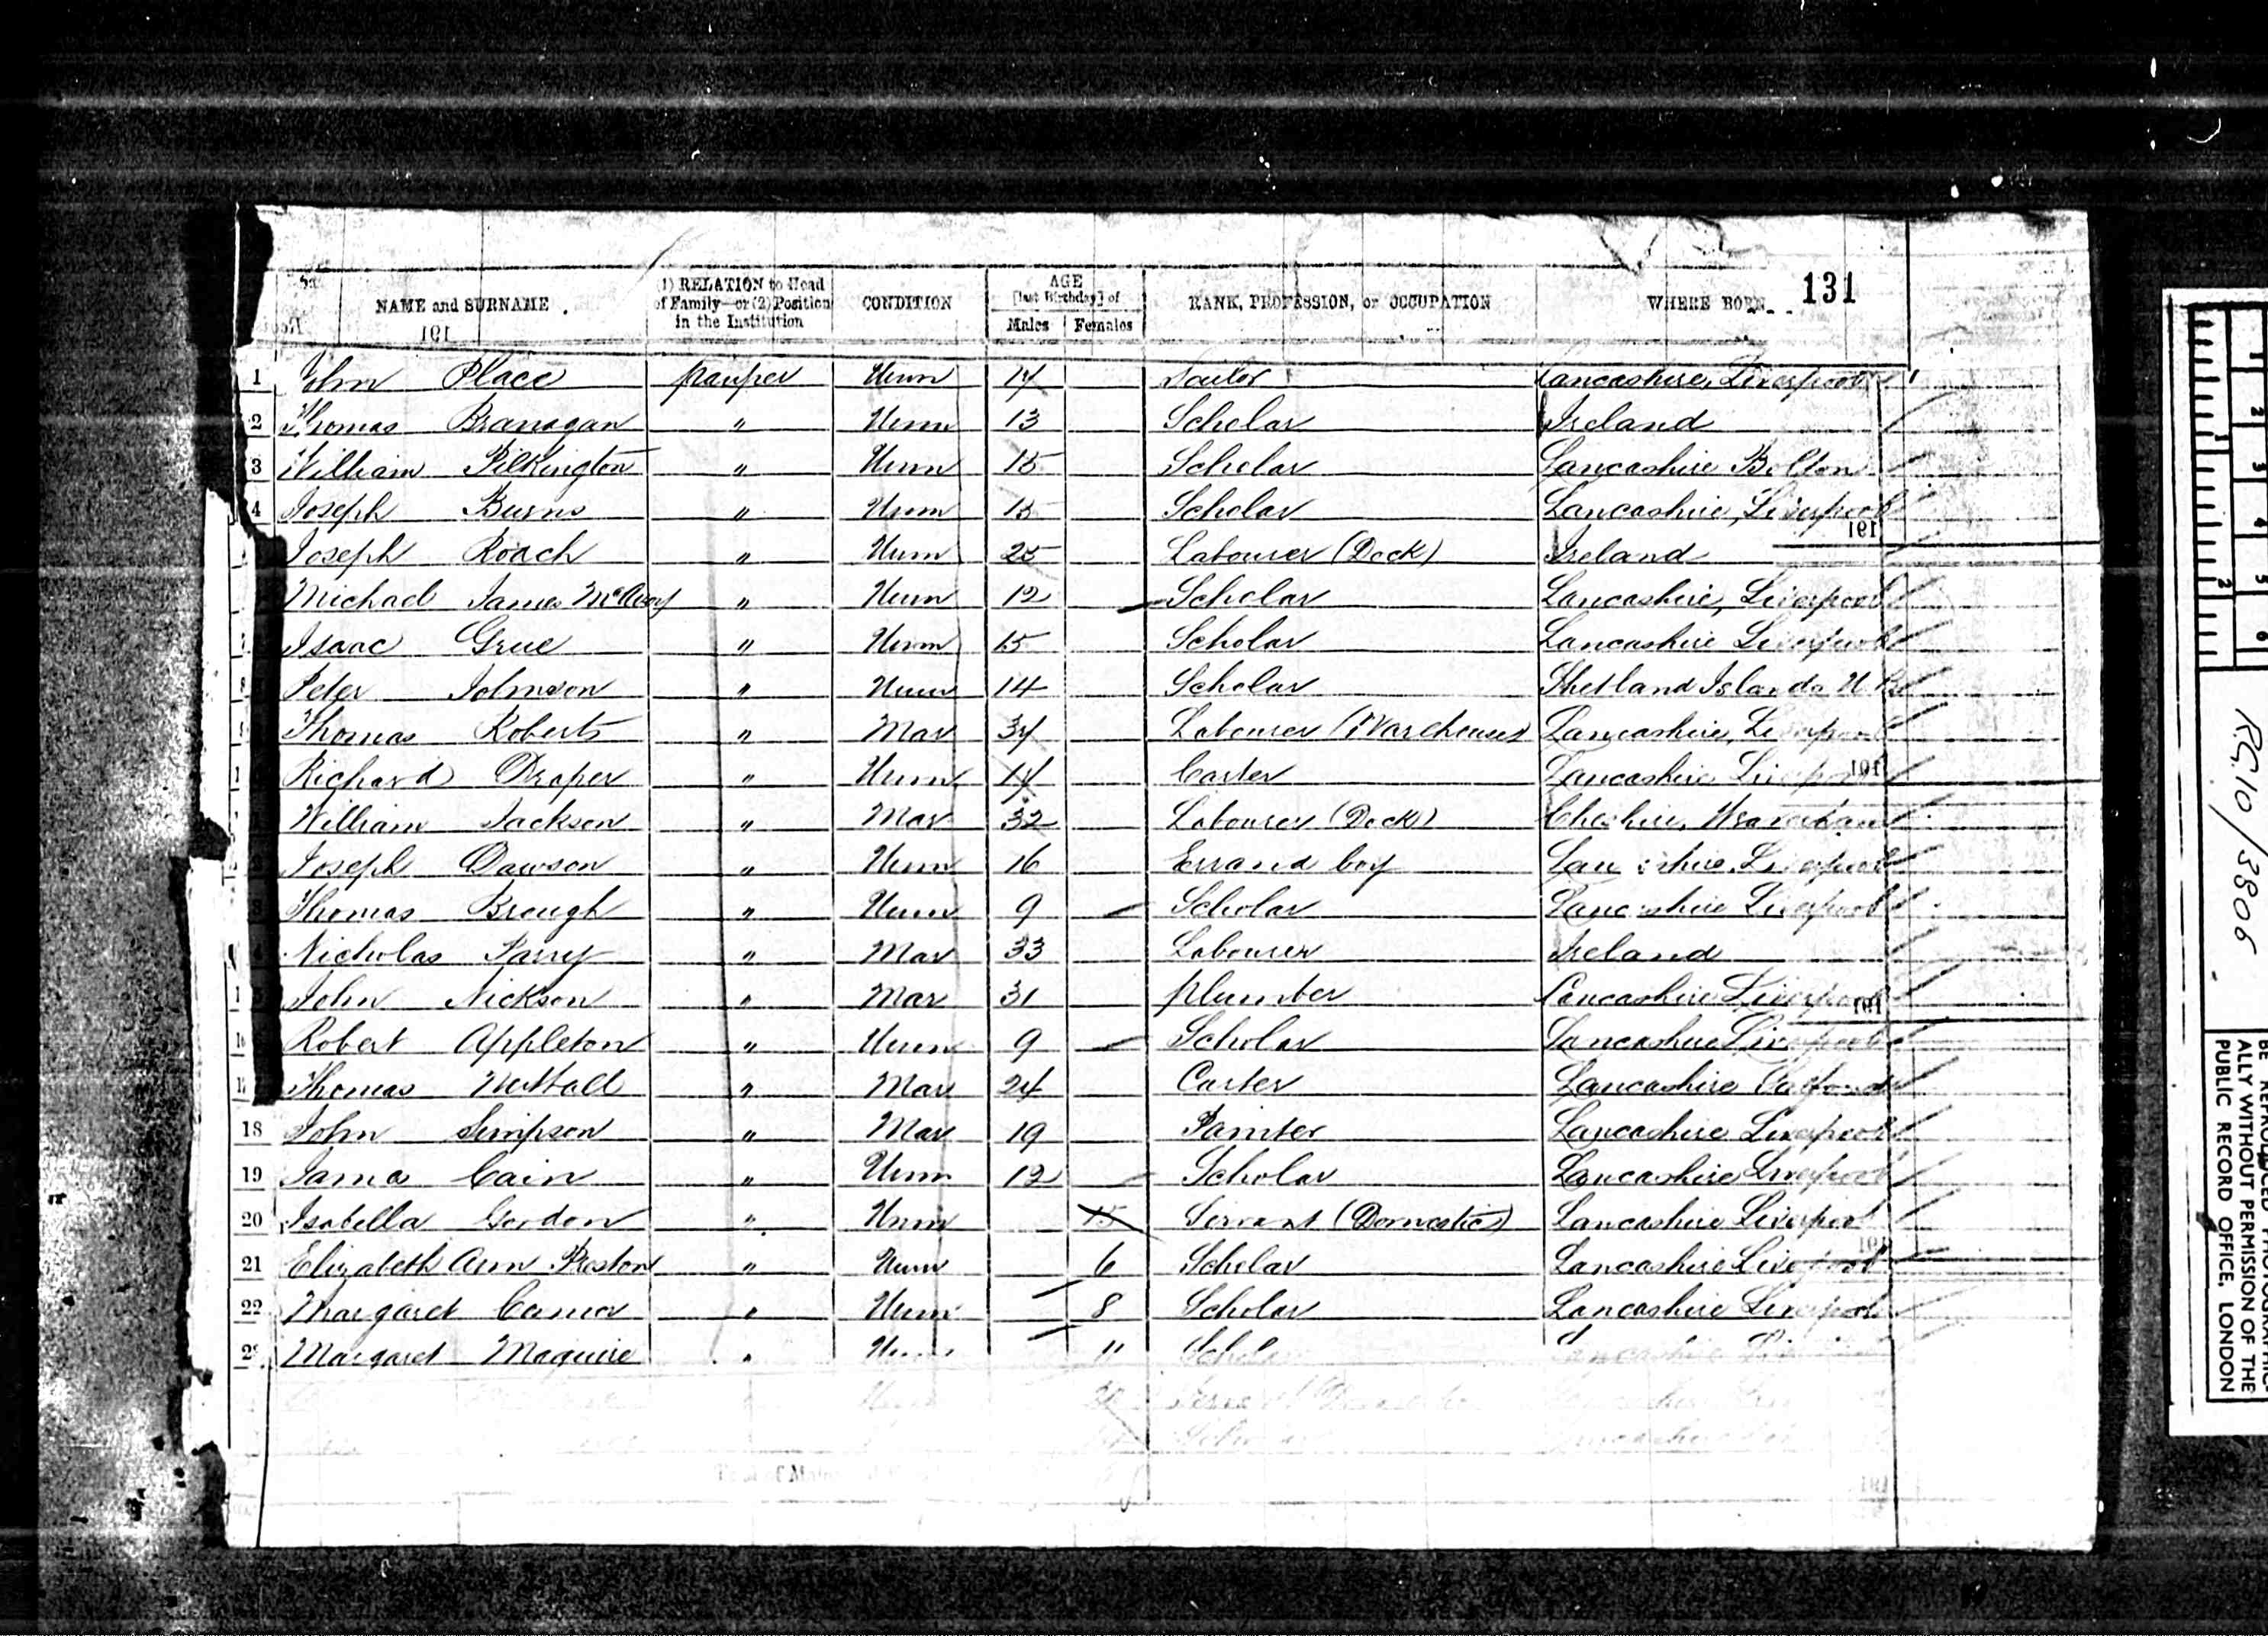 131
NAME and SURNAME
(1) RELATION to Head of Family—or (2) Position in the Institution
CONDITION
AGE [last Birthday] of
Males Females
RANK, PROFESSION, or OCCUPATION
WHERE BORN
1 John Place pauper Unm 14 Sailor Lancashire, Liverpool
2 Thomas Branagan " Unm 13 Scholar Ireland
3 William Pilkington " Unm 15 Scholar Lancashire Bolton
4 Joseph Burns " Unm 15 Scholar Lancashire, Liverpool
Joseph Roach " Unm 25 Labourer (Dock) Ireland
Michael James " Unm 12 Scholar Lancashire, Liverpool
Isaac Grue " Unm 15 Scholar Lancashire Liverpool
8 Peter Johnson " Unm 14 Scholar Shetland Islands
Thomas Roberts " Mar 34 Labourer (Warehouse) Lancashire, Liverpool
Richard Draper " Unm 14 Carter Lancashire Liverpool
William Jackson " Mar 32 Labourer (Dock) Cheshire,
Joseph Dawson " Unm 16 Errand boy Lancashire, Liverpool
Thomas Brough " Unm 9 Scholar Lancashire Liverpool
Nicholas Parry " Mar 33 Labourer Ireland
John Nickson " Mar 31 plumber Lancashire Liverpool
Robert Appleton " Unm 9 Scholar Lancashire Liverpool
Thomas Nuttall " Mar 24 Carter Lancashire
18 John Simpson " Mar 19 Painter Lancashire Liverpool
19 James Cain " Unm 12 Scholar Lancashire Liverpool
20 Isabella Gordon " Unm 15 Servant (Domestic) Lancashire Liverpool
21 Elizabeth Ann Preston " Unm 6 Scholar Lancashire Liverpool
22 Margaret " Unm 8 Scholar Lancashire Liverpool
23 Margaret Maguire " Unm 11 Scholar Lancashire
RG10/3806
ALLY WITHOUT PERMISSION OF THE
PUBLIC RECORD OFFICE, LONDON